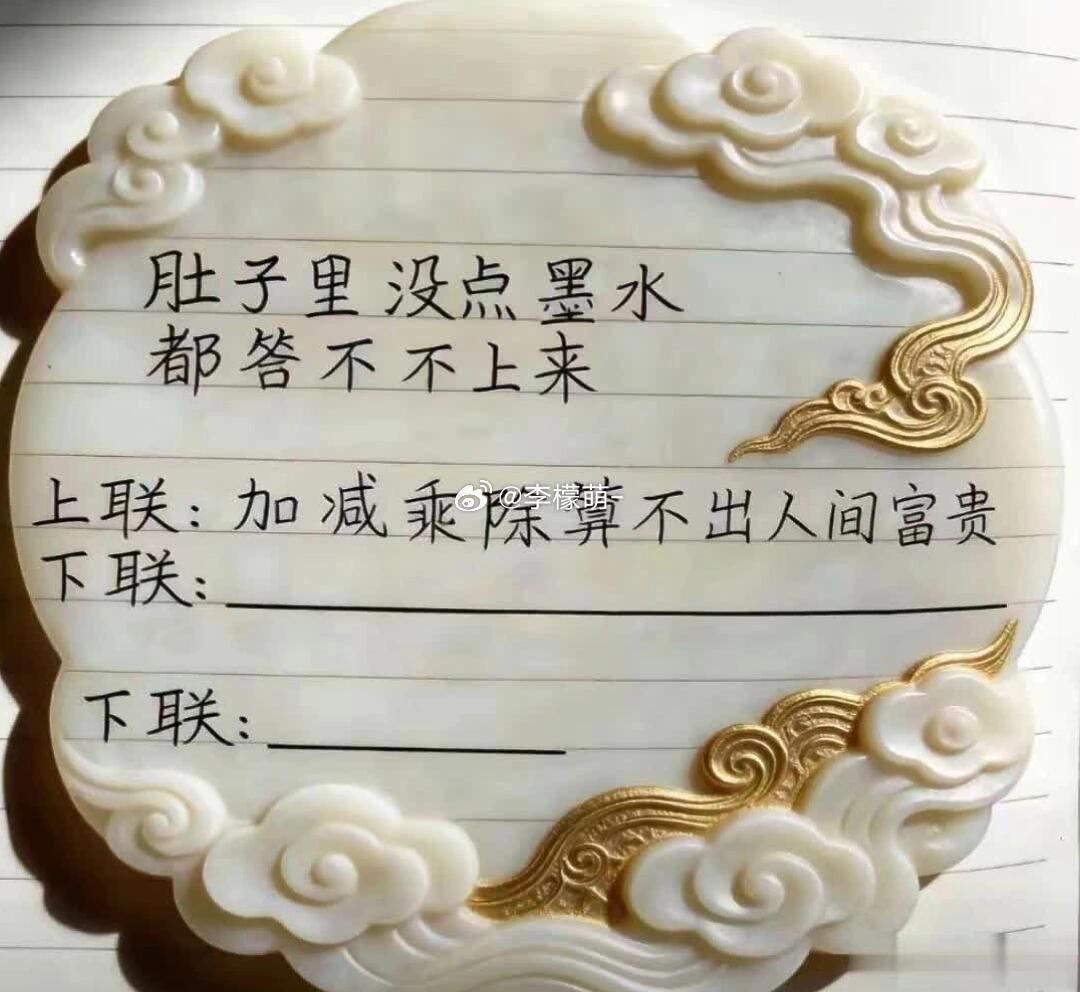 肚子里没点墨水
都答不不上来
上联：加减乘除算不出人间富贵
@李檬萌-
下联：
下联：